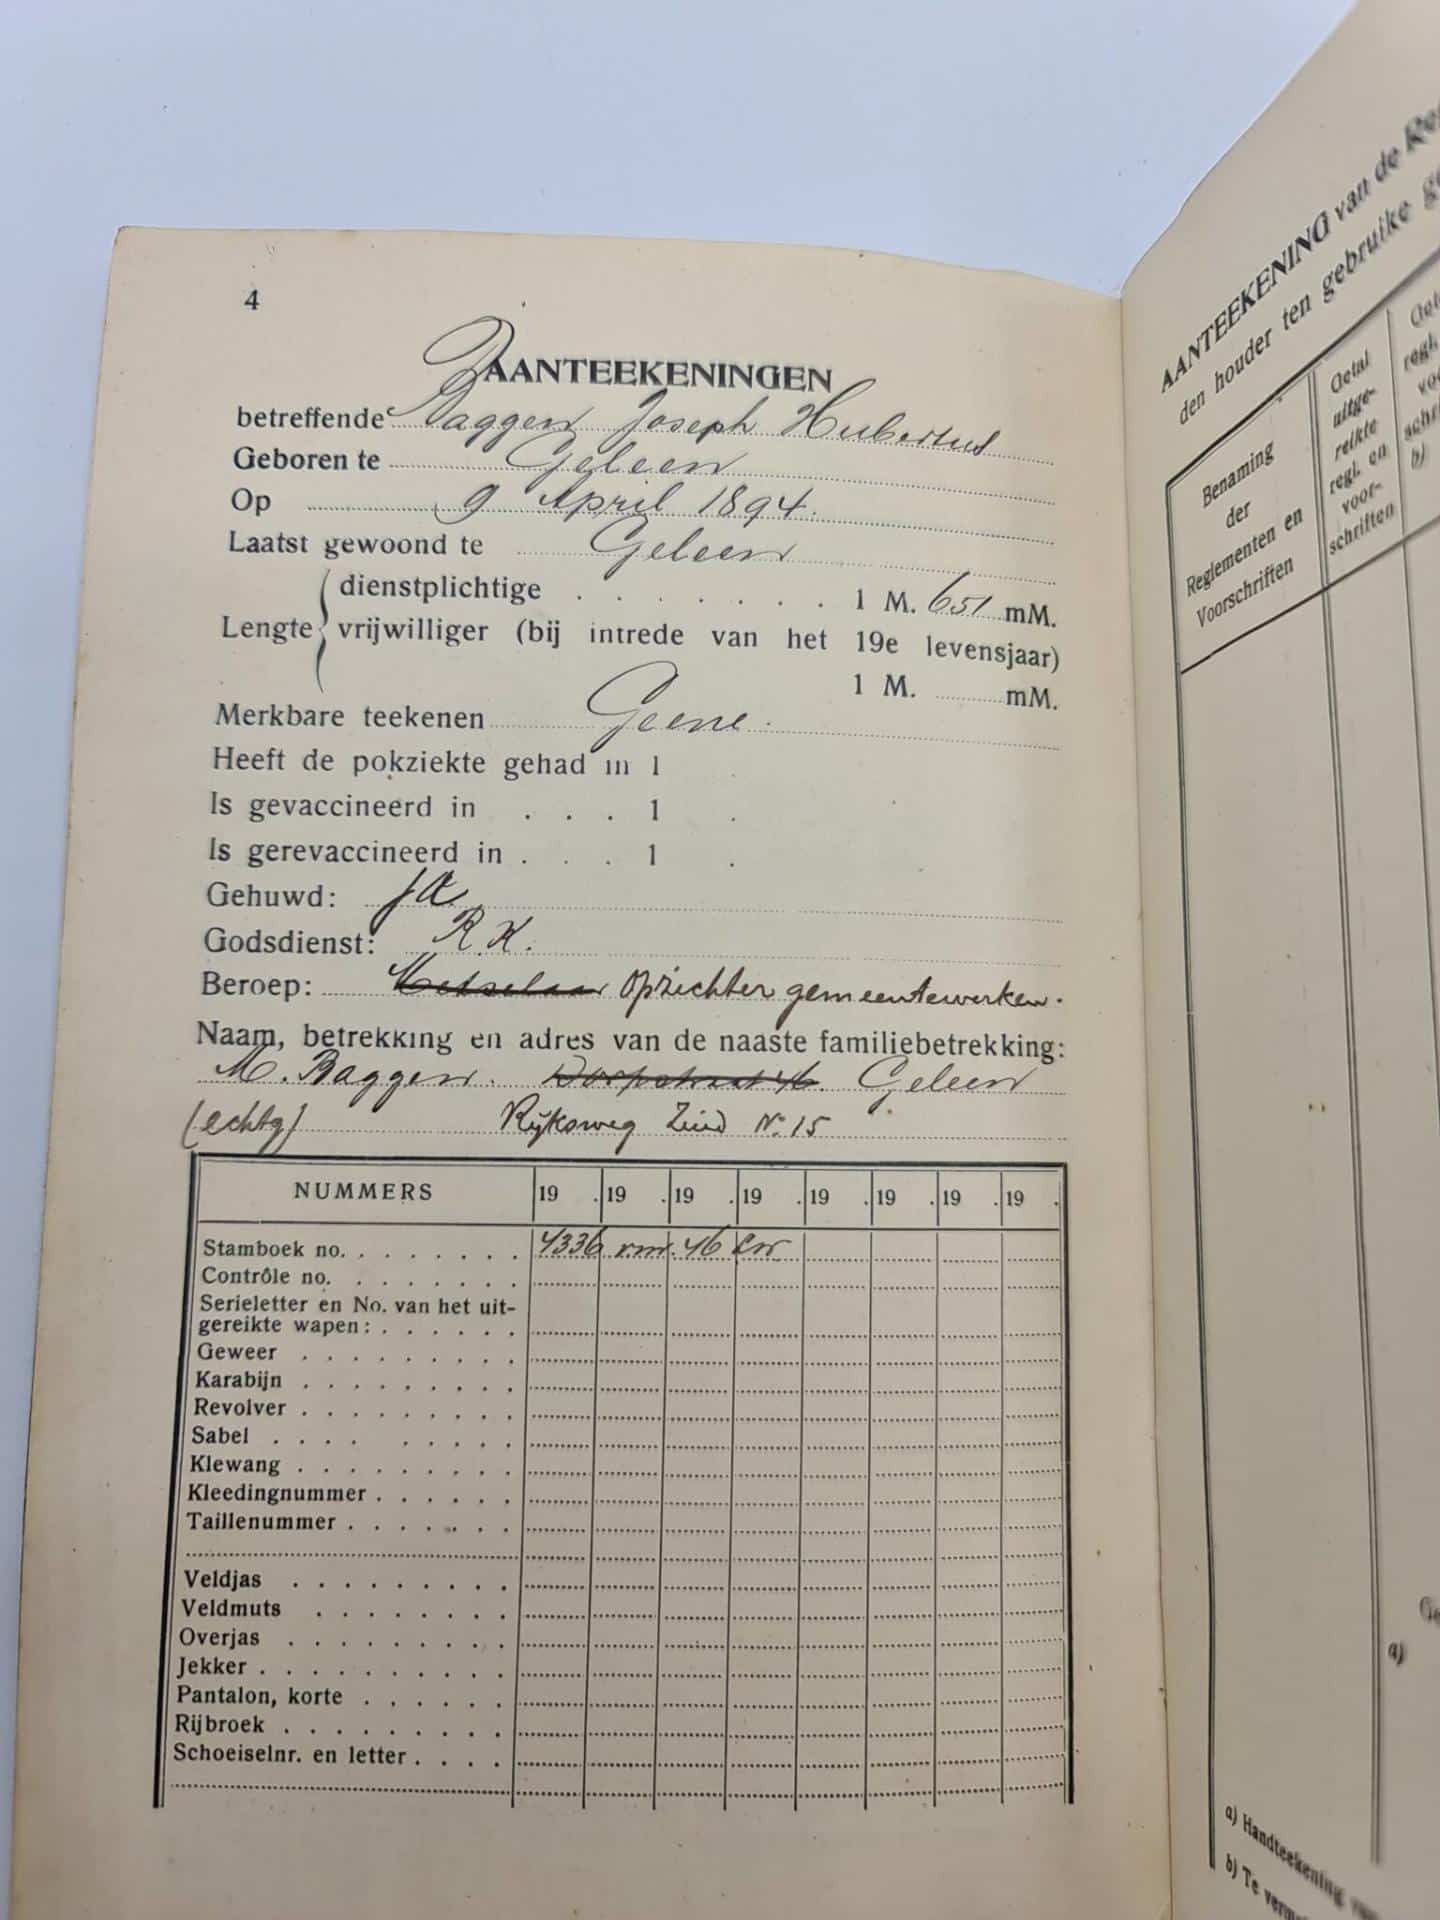 4
AANTEEKENINGEN
betreffende Baggen Joseph Hubertus
Geboren te Geleen
Op 9 April 1894.
Laatst gewoond te Geleen
dienstplichtige . . . . . . . 1 M. 651 mM.
Lengte vrijwilliger (bij intrede van het 19e levensjaar)
1 M. mM.
Merkbare teekenen Geene.
Heeft de pokziekte gehad in 1
Is gevaccineerd in . . . 1 .
Is gerevaccineerd in . . . 1 .
Gehuwd: ja
Godsdienst: R.K.
Beroep: Metselaar opzichter gemeentewerken.
Naam, betrekking en adres van de naaste familiebetrekking:
M. Baggen. Dorpstraat 46. Geleen
(echtg) Rijksweg Zuid No. 15
NUMMERS 19 . 19 . 19 . 19 . 19 . 19 . 19 . 19 .
Stamboek no. 4336 46
Contrôle no.
Serieletter en No. van het uit-
gereikte wapen:
Geweer
Karabijn
Revolver
Sabel
Klewang
Kleedingnummer
Taillenummer
Veldjas
Veldmuts
Overjas
Jekker
Pantalon, korte
Rijbroek
Schoeiselnr. en letter
AANTEEKENING van de
den houder ten gebruike
Benaming
der
Reglementen en
Voorschriften
Getal
uitge-
reikte
regl. en
voor-
schriften
regl.
b)
a)
a) Handteekening
b) Te